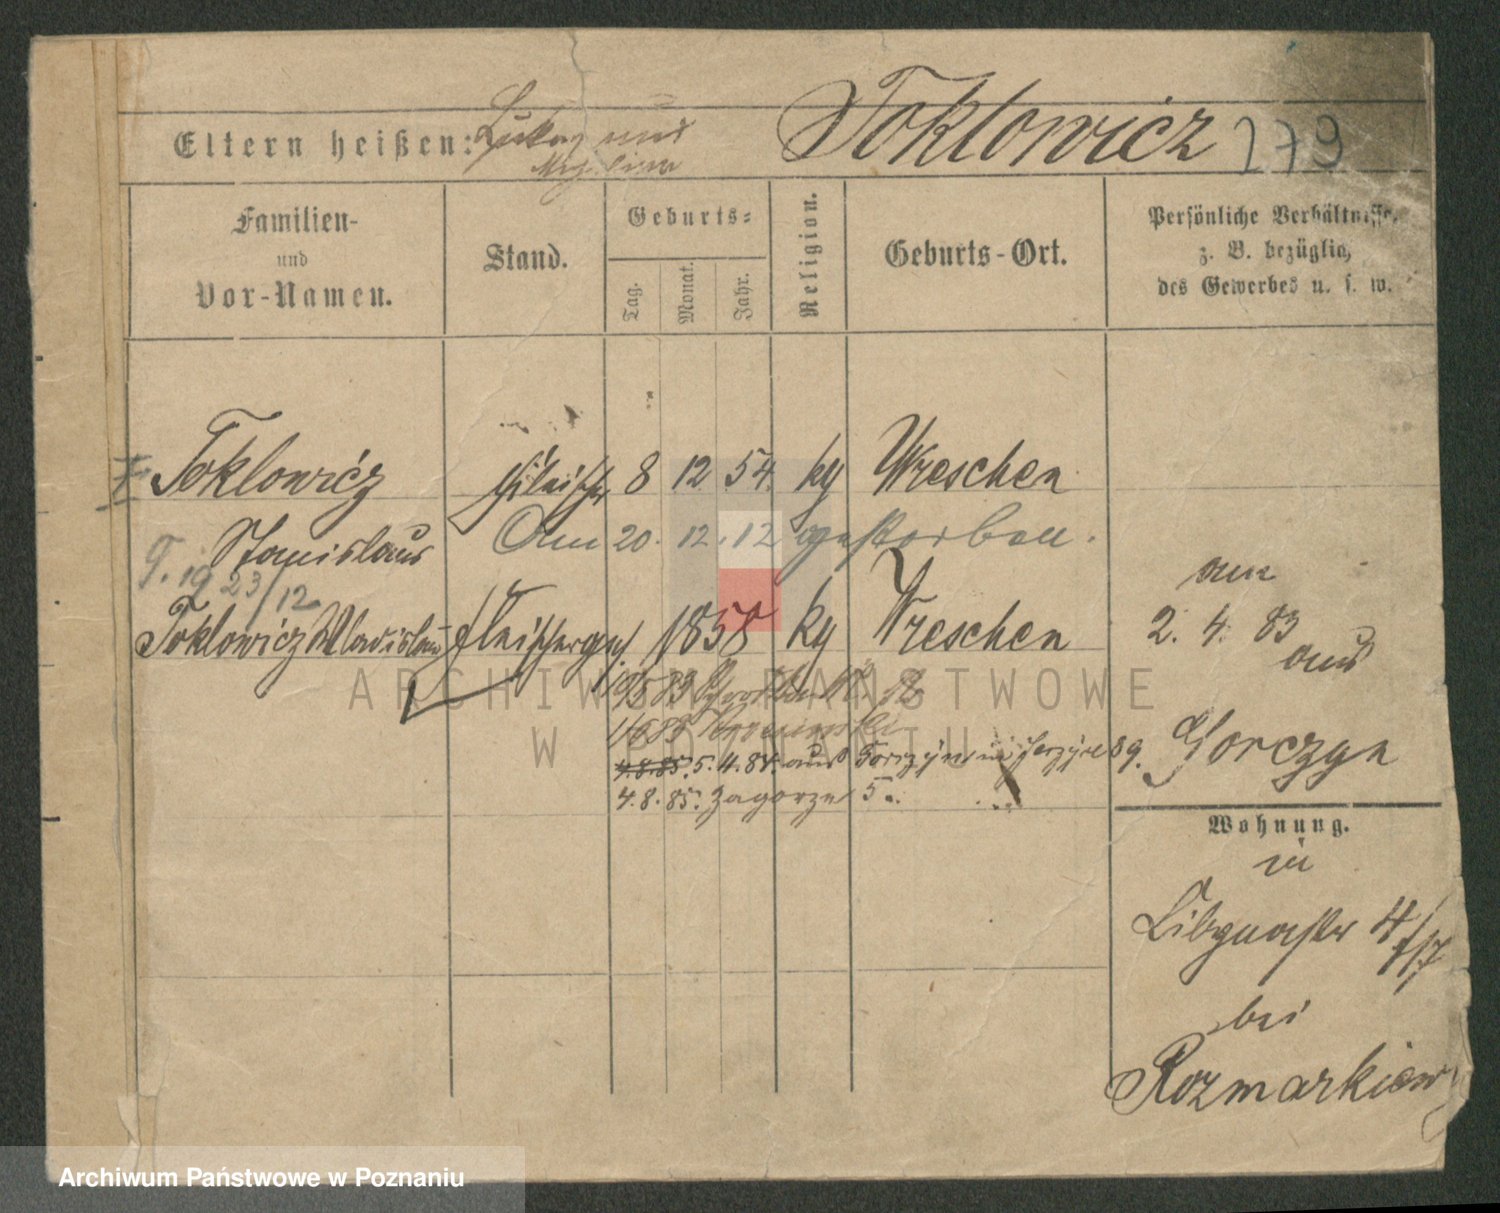 Eltern heißen: Lukas und
Toklowicz 279
Familien-
und
Vor-Namen.
Stand.
Geburts-
Tag.
Monat.
Jahr.
Religion.
Geburts-Ort.
Persönliche Verhältnisse,
z. B. bezüglich
des Gewerbes u. s. w.
Toklowicz Fleischer 8 12 54. kg Wreschen
Stanislaus Am 20. 12. 12 gestorben.
G. 19 23/12
Toklowicz Wladislaus Fleischerges. 1858 kg Wreschen
am
2. 4. 83
aus
Gorczyn
4.8.85. 5. 4. 84. aus Gorczyn in 39.
4. 8. 85. Zagorze 5.
Wohnung.
in
4/5
bei
Rozmarkiew
ARCHIWUM PAŃSTWOWE
W POZNANIU
Archiwum Państwowe w Poznaniu